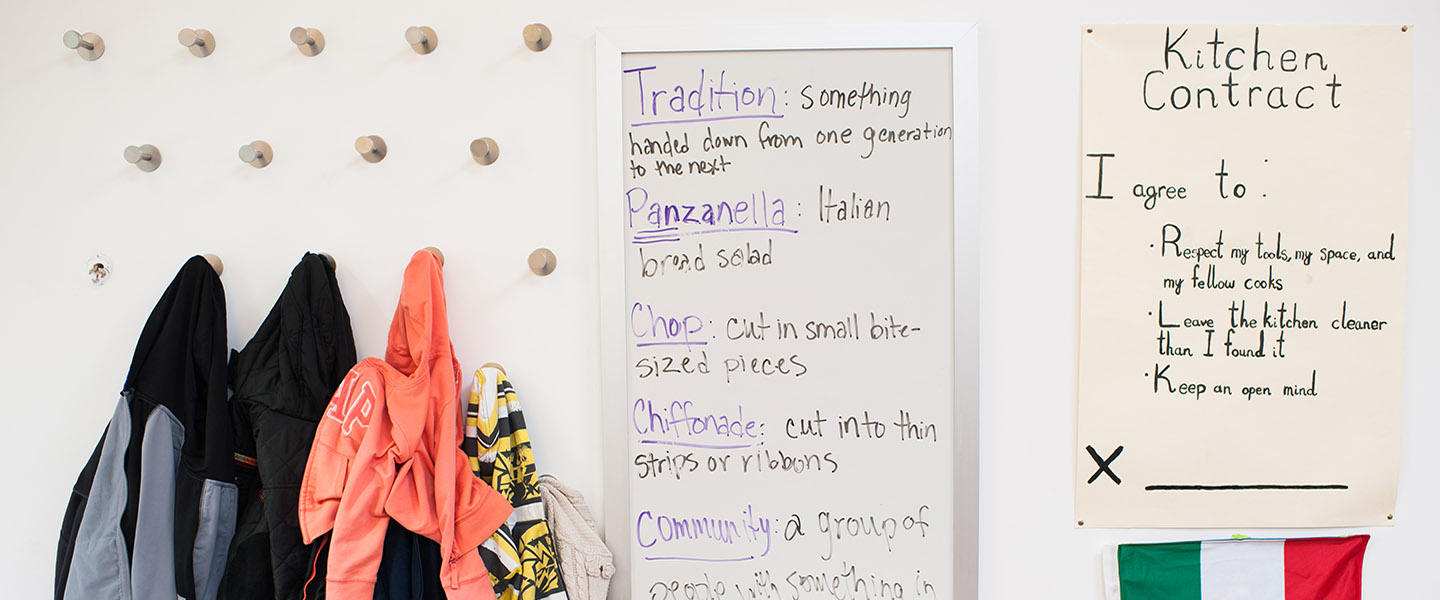 Tradition: something
handed down from one generation
to the next
Panzanella: Italian
bread salad
Chop: cut in small bite-
sized pieces
Chiffonade: cut into thin
strips or ribbons
Community: a group of
people with something in
Kitchen
Contract
I agree to:
· Respect my tools, my space, and
my fellow cooks
· Leave the kitchen cleaner
than I found it
· Keep an open mind
X